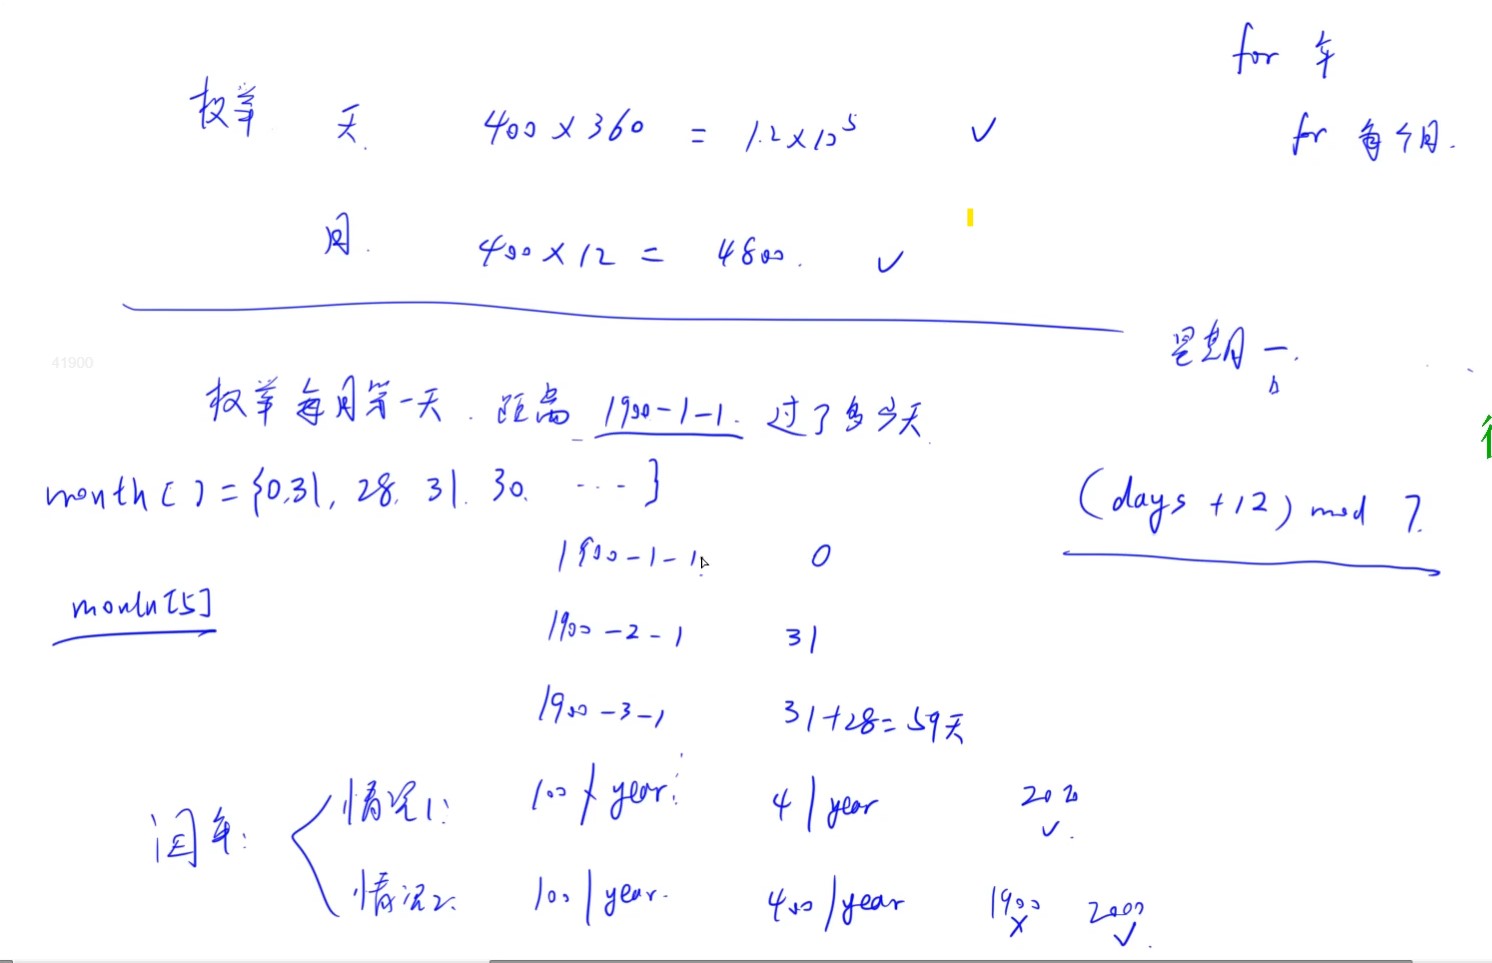 for 年
枚举 天. 400 × 360 = 1.2×10⁵ ✓
for 每个月.
月. 400 × 12 = 4800. ✓
41900
星期一.
枚举每月第一天. 距离 1900-1-1. 过了多少天
month[] = {0,31, 28, 31. 30. ...}
(days +12) mod 7.
1900-1-1 0
month[5]
1900-2-1 31
1900-3-1 31+28=59天
闰年:
情况1: 100∤year. 4|year 2020 ✓.
情况2. 100|year. 400|year 1900 × 2000 ✓.